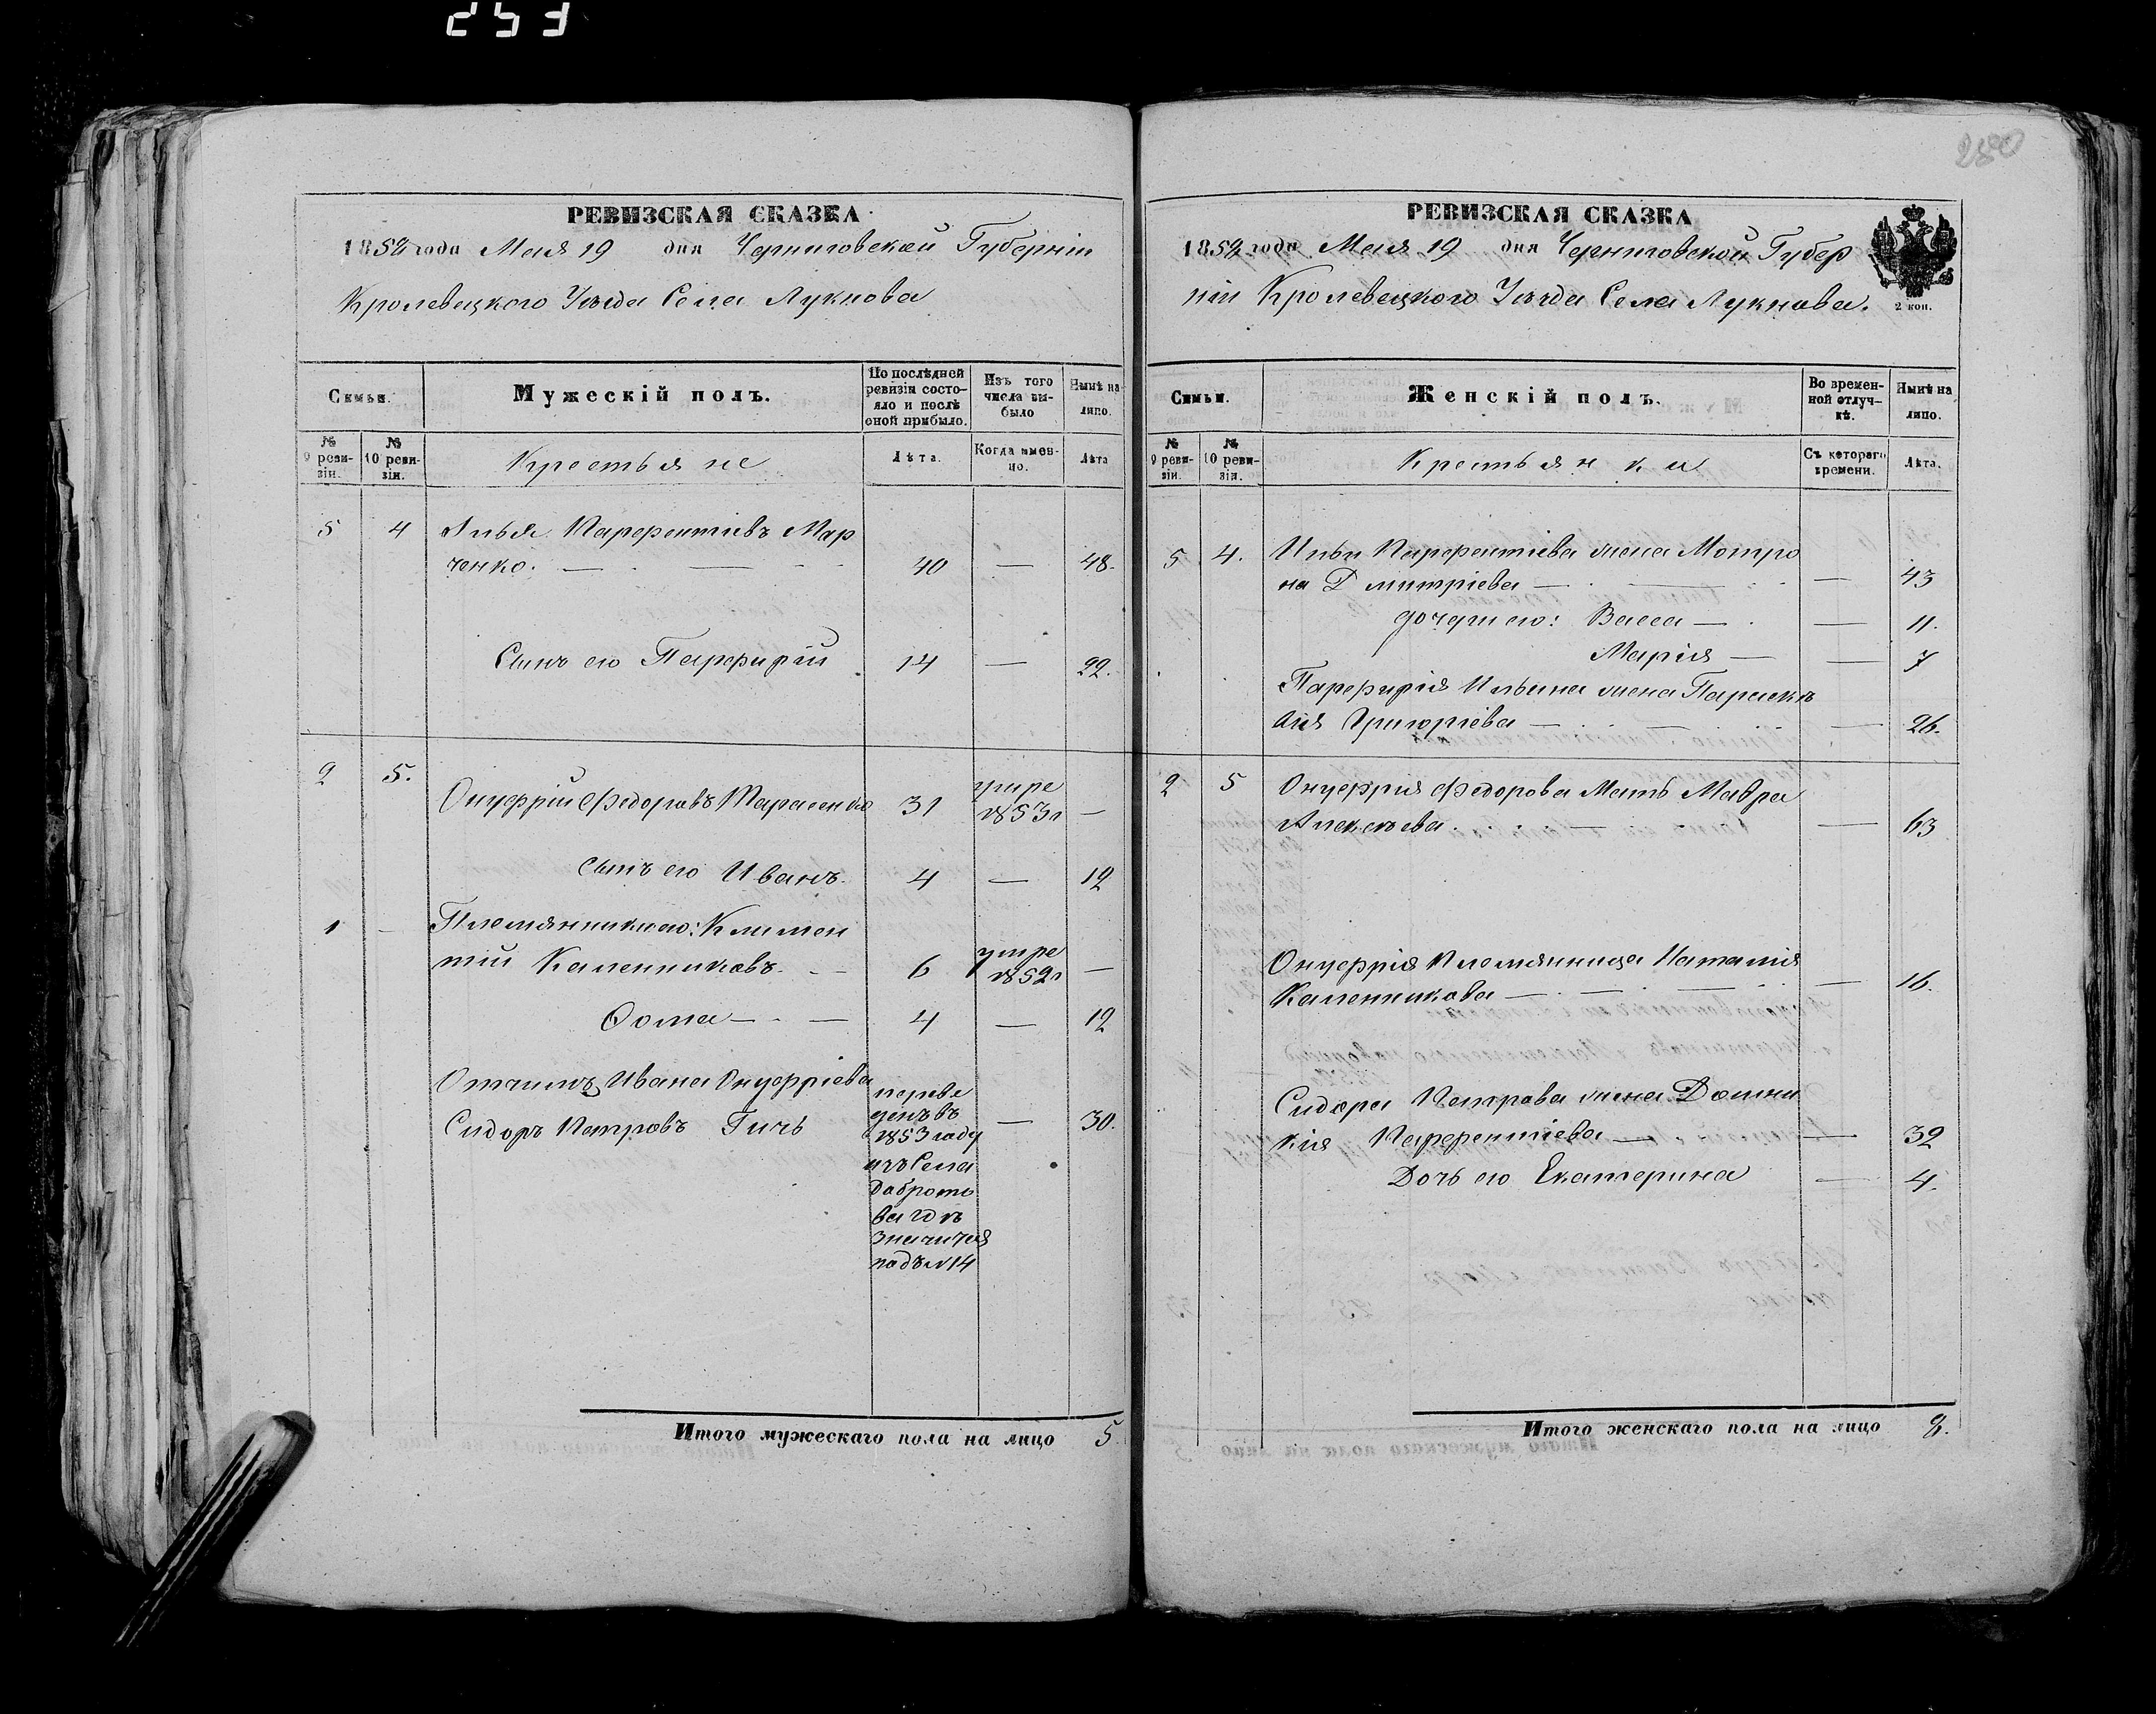 253
280
РЕВИЗСКАЯ СКАЗКА
1858 года Мая 19 дня Черниговской Губерніи
Кролевецкого Уѣзда Села Лукнова
Семьи.
Мужескій полъ.
По послѣдней
ревизіи состо-
яло и послѣ
оной прибыло.
Изъ того
числа вы-
было
Нынѣ на
лицо.
№
9 реви-
зіи.
№
10 реви-
зіи.
Крестьяне
Лѣта.
Когда имен-
но.
Лѣта
5 4 Илья Парфентіевъ Мар
ченко. — — 40 — 48.
Сынъ его Парфирій 14 — 22.
2 5. Онуфрій Федоровъ Тарасенко 31 умре
1853г —
сынъ его Иванъ 4 — 12
1 — Племянники его: Климен
тій Каленниковъ — 6 умре
1852г —
Ѳома — — 4 — 12
Отчимъ Ивана Онуфріева
Сидоръ Петровъ Гичь — 30.
переве
денъ въ
1853 году
изъ Села
Доброто
ва гдѣ
значится
подъ №14
Итого мужескаго пола на лицо 5
РЕВИЗСКАЯ СКАЗКА
1858 года Мая 19 дня Черниговской Губер
ніи Кролевецкого Уѣзда Села Лукнова.
2 коп.
Семьи.
Женскій полъ.
Во времен-
ной отлуч-
кѣ.
Нынѣ на
лицо.
№
9 реви-
зіи.
№
10 реви-
зіи.
Крестьянки
Съ котораго
времени.
Лѣта.
5 4. Ильи Парфентіева жена Мотро
на Дмитріева — — 43
дочери его: Васса — — 11.
Марія — — 7
Парфирія Ильина жена Параске
вія Григоріева — — 26.
2 5 Онуфрія Федорова Мать Мавра
Алексѣева. — — 63
Онуфрія племянница Наталія
Каленникова — — 16.
Сидора Петрова жена Домни
кія Парфентіева — — 32
Дочь его Екатерина — 4.
Итого женскаго пола на лицо 8.